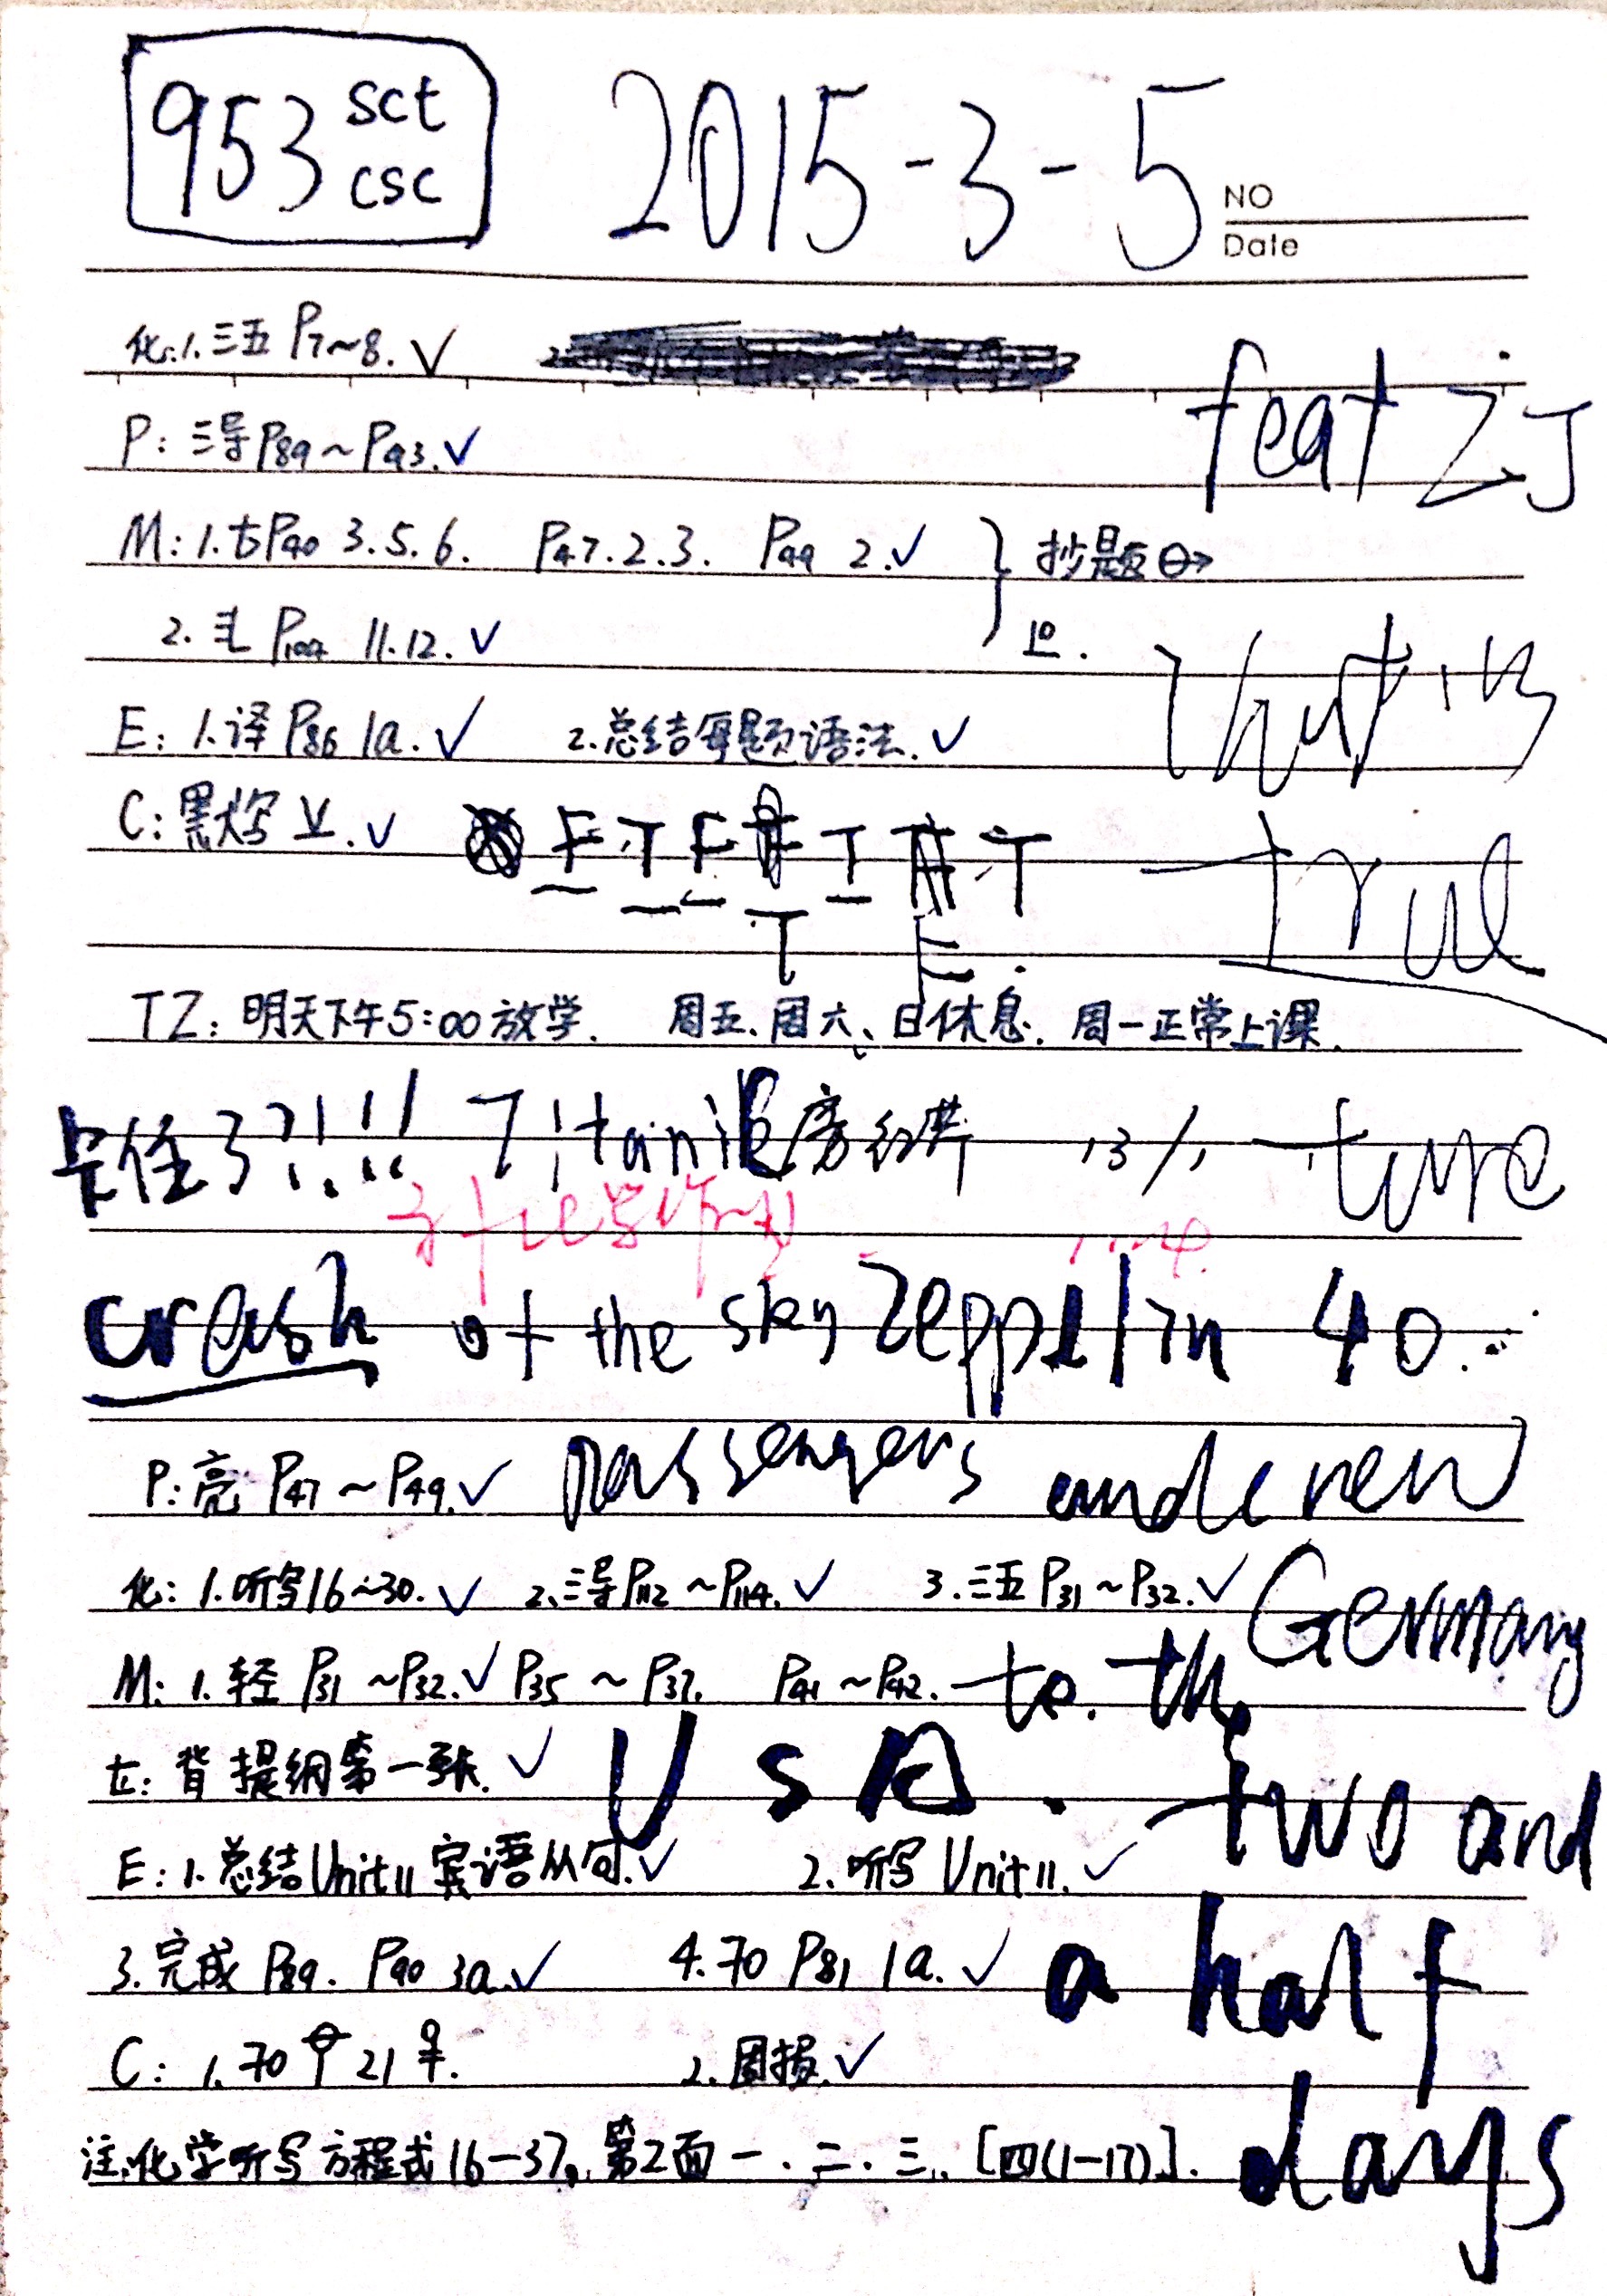 953 sct csc 2015-3-5
NO
Date
化:1.三五 P7~8.√
feat ZJ
P: 三导P89~P93.√
M: 1.古P40 3.5.6. P47.2.3. P49 2.√ 抄题
2. P104 11.12.√
that is
E: 1.译P86 1a.√ 2.总结每题语法.√
C: 黑 √ F T F F T T
true
T F
TZ: 明天下午5:00放学. 周五、周六、日休息. 周一正常上课.
卡住了?!!! 13
crash of the sky Zeppelin 40
P: 亮 P47~P49.√ passengers and crew
化: 1.听写16~30.√ 2.三导P112~P114.√ 3.三五P31~P32.√ Germany
M: 1.轻 P31~P32.√ P35~P37. P41~P42. to the
背提纲第一张.√ USA. two and
E: 1.总结Unit11宾语从句.√ 2.听写Unit11.√
3.完成P89. P90 3a.√ 4.70 P81 1a.√ a half
C: 1.70 21 2.周报.√
注:化学听写方程式16-37,第2面一.二.三.[四(1-17)]. days